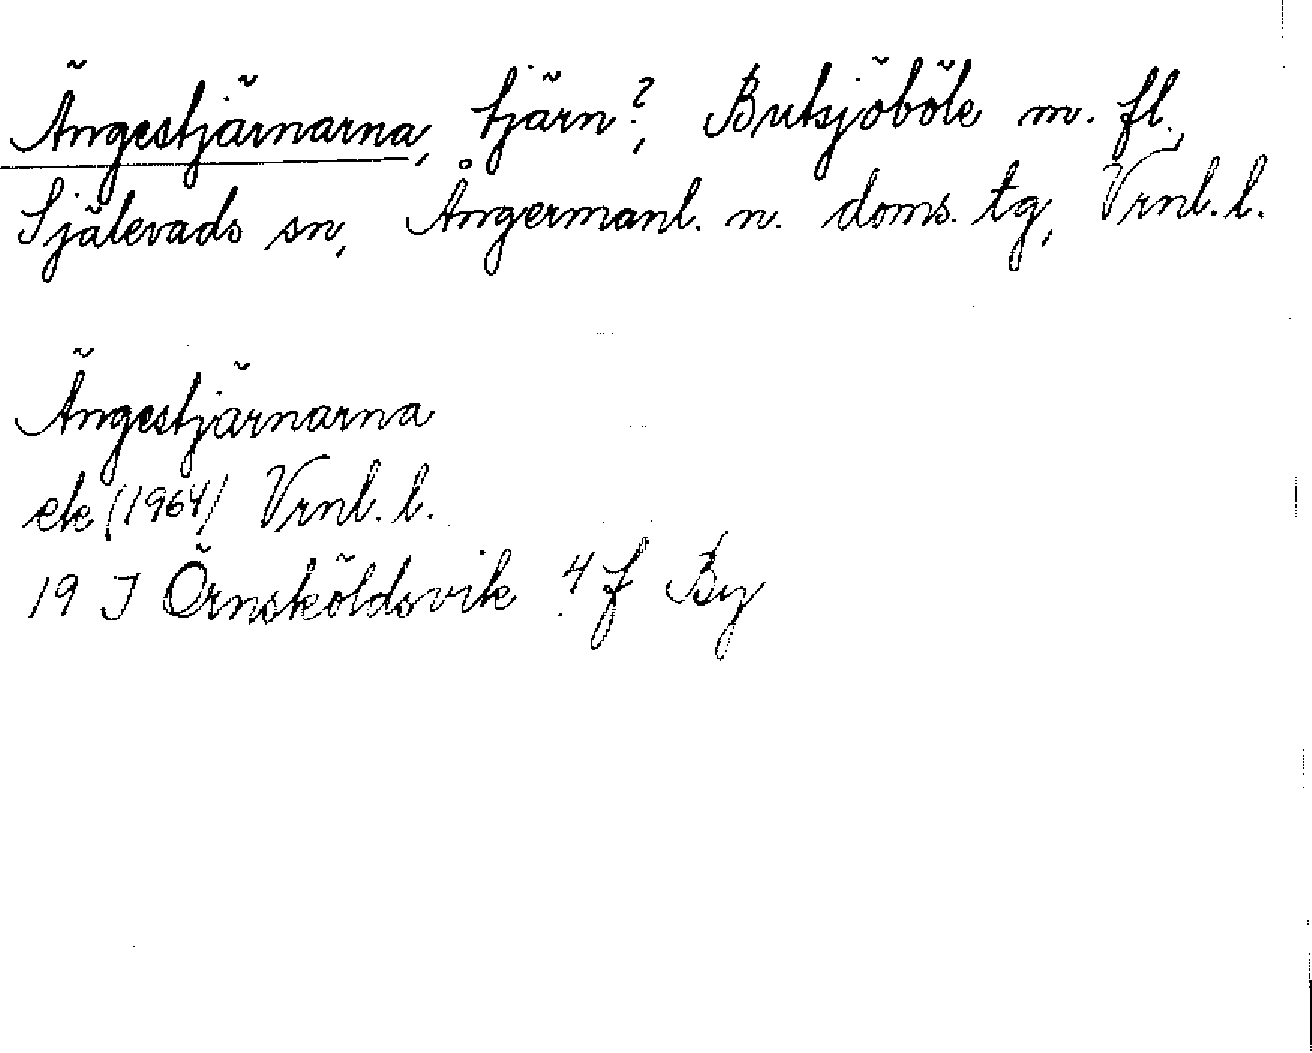 Ängestjärnarna, tjärn?, Butsjöböle m. fl.,
Själevads sn, Ångermanl. n. doms. tg, Vrnl. l.
Ängestjärnarna
ek (1964) Vrnl. l.
19 J Örnsköldsvik 4 f By